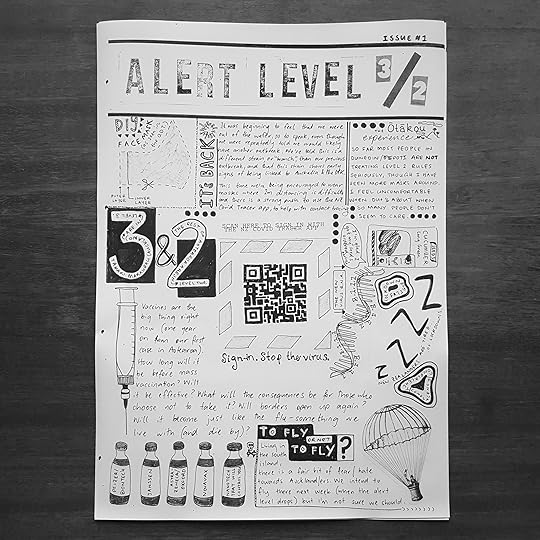 ISSUE #1
ALERT LEVEL 3/2
D.I.Y.
FACE
MASK
OUTER LAYER
INNER LAYER
IT'S BACK
It was beginning to feel that we were
out of the water, so to speak, even though
we were repeatedly told we would likely
have another outbreak. We're told this is a
different strain or "branch" than our previous
outbreak, and that this chain shows early
signs of being linked to Australia & the UK.
This time we're being encouraged to wear
masks where distancing is difficult
and there is a strong push to use the
Covid Tracer app, to help with contact tracing
Otākou
experience
SO FAR MOST PEOPLE IN
DUNEDIN ARE NOT
TREATING LEVEL 2 RULES
SERIOUSLY, THOUGH I HAVE
SEEN MORE MASKS AROUND.
I FEEL UNCOMFORTABLE
WHEN OUT & ABOUT WHEN
SO MANY PEOPLE DON'T
SEEM TO CARE
3 & 2
THE REST OF
#LEVELTWO
SCAN HERE TO SIGN IN WITH
THE NZ COVID TRACER
Sign-in. Stop the virus.
Vaccines are the
big thing right
now (one year
on from our first
case in Aotearoa).
How long will it
be before mass
vaccination? Will
it be effective? What will the consequences be for those who
choose not to take it? Will borders open up again?
Will it become just like the flu - something we
live with (and die by)?
TO FLY
OR NOT
TO FLY?
Living in
the South
Island,
there is a fair bit of fear/hate
towards Aucklanders. We intend to
fly there next week (when the alert
level drops) but I'm not sure we should.
PFIZER
BIONTECH
JANSSEN
NOVAVAX